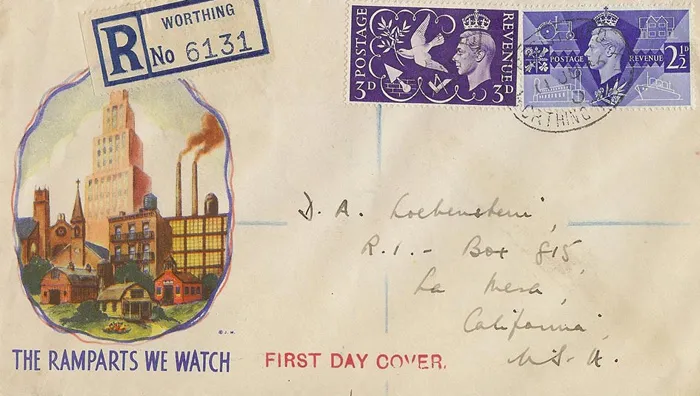 WORTHING
R No 6131
POSTAGE REVENUE
3D 3D
POSTAGE REVENUE
2½D
WORTHING
D. A. Loebenstein,
R.1.- Box 815,
La Mesa,
California,
U.S.A.
THE RAMPARTS WE WATCH
FIRST DAY COVER.